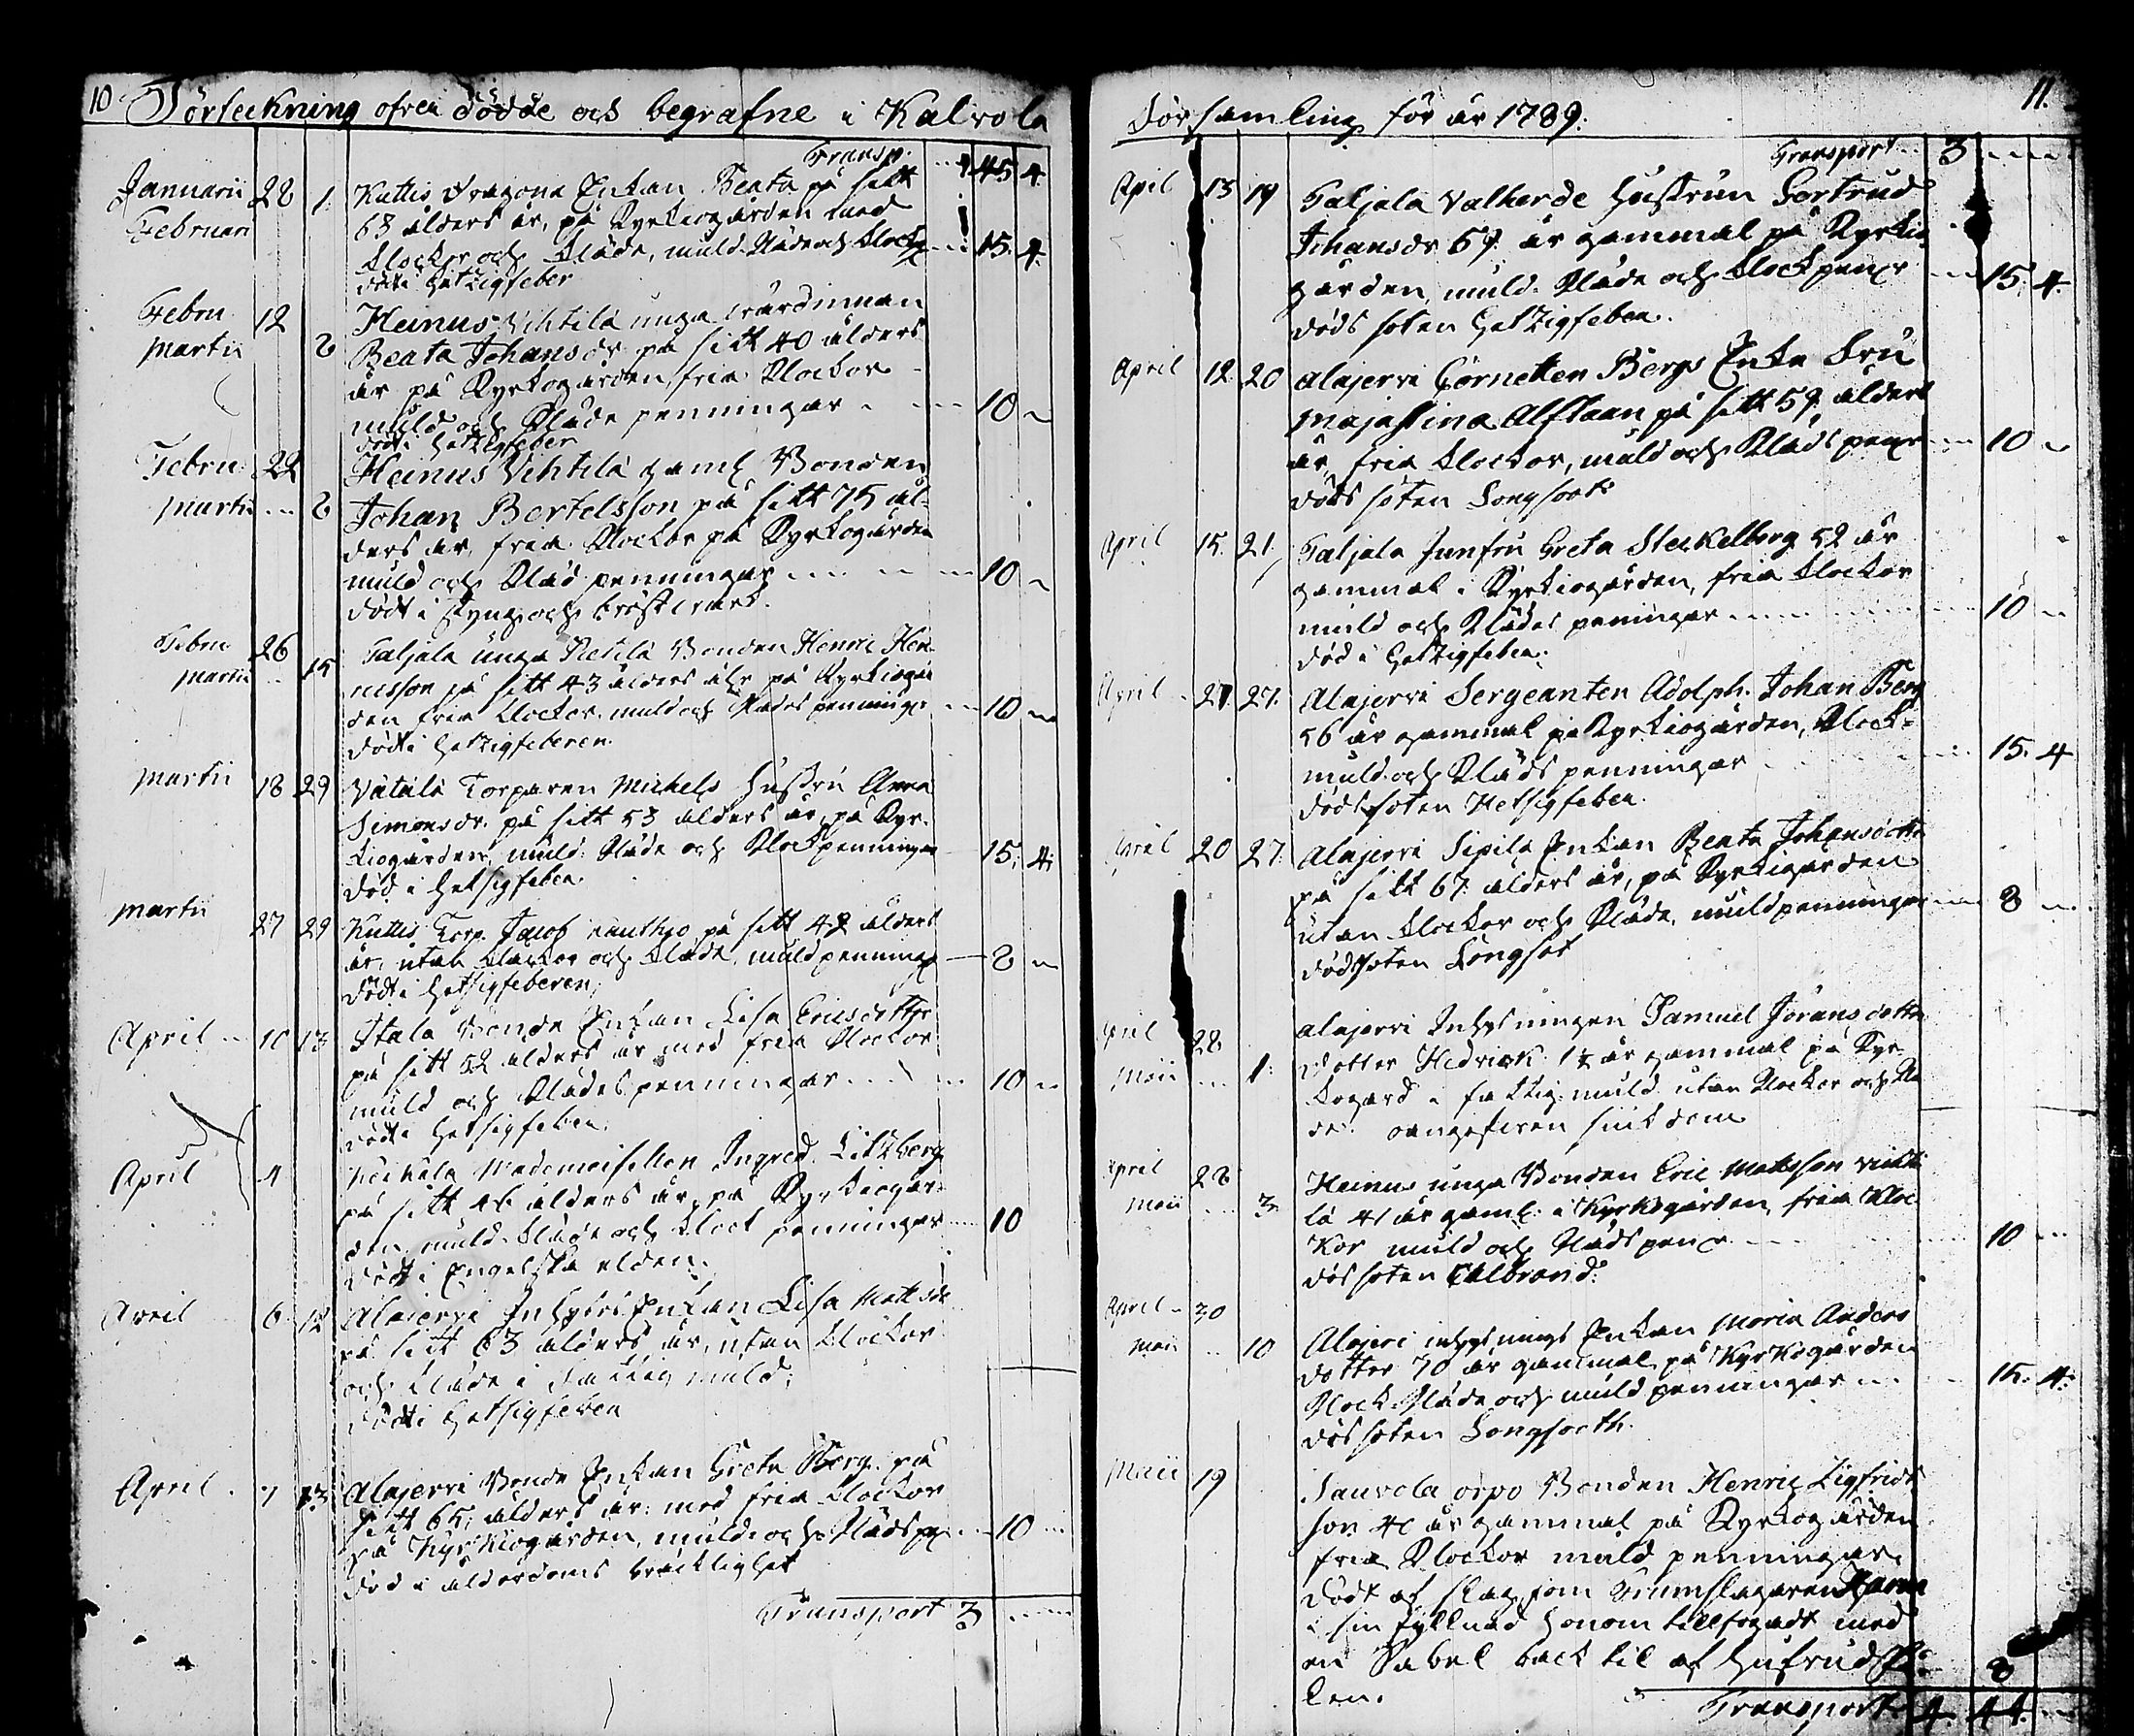 10 Förteckning öfver dödde och begrafne i Kalvola
Transp. 1 45 4
Januarii 28 1. Kuttis Dragone Enkan Beata på sitt
Februari 63 ålders år, på Kyrkiogården med
klockor och Kläde, muld Kläde och klockp 15. 4.
död i Hetzigfeber
Febru 12 Heinus Vihtilä unga wärdinnan
Martii 8 Beata Johansdr på sitt 40 ålders
år på Kyrkogården fria Klockor
muld och Kläde penningar 10
död i Hetzigfeber
Febru 22 Heinus Vihtilä gaml Bonden
Martii 8 Johan Bertelsson på sitt 75 ål-
ders år, fria Klockor på Kyrkogården
muld och Kläd penningar 10
död i styng och bröstwerk.
Febru 26 Taljala unga Bonden Henric Hen-
Martii 15 ricsson på sitt 43 ålders åhr på Kyrkiogår
den fria klockor muld och Klädes penningr 10
död i Hetzigfeberen
Martii 18 29 Vätälä Torparen Michels Hustru Anna
Simonsdr. på sitt 53 ålders år, på Kyr-
kiogården, muld Kläde och Klockpenningar 15. 4.
Död i Hetsigfeber
Martii 27 29 Kuttis Torp. Jacob på sitt 48 ålders
år, utan klockor och kläde, muldpenningr 8
död i Hetsigfeberen,
April 10 13 Itala Bonde Enkan Lisa Ericsdotter
på sitt 52 ålders år med fria Klockor
muld och Klädes penningar 10
död i Hetsigfeber.
April 4 Mademoisellen Ingred Litzberg
på sitt 46 ålders år, på Kyrkiogår-
den muld Kläde och klock penningar 10
Död i Engelska elden.
April 6 12 Alajervi Inhyses Enkan Lisa Mattsdr
på sitt 63 ålders år, utan klockor
och kläde i fattig muld,
död i Hetsigfeber
April 7 13 Alajervi Bonde Enkan Greta Berg på
sitt 65 ålders år: med fria klockor
på Kyrkiogården, muld och Klädspg 10
död i ålderdoms bräcklighet
Transport 3
Församling för år 1789. 11.
Transport 3
April 13 19 Taljala Valherde Hustrun Gertrud
Johansdr 67 år gammal på Kyrkio
gården, muld Kläde och klockpengr 15. 4.
döds soten Hetzigfeber.
April 12 20 Alajervi Cornetten Bergs Enka Fru
Majastina Alftaan på sitt 59 ålders
år, fria klockor, muld och Kläds pengr 10
döds soten Longsoot
April 15. 21. Taljala Junfru Greta Steckelberg 52 år
gammal i Kyrkiogården, fria klockor
muld och Klädes peningar 10
död i Hetzigfeber.
April 21 27. Alajervi Sergeanten Adolph. Johan Berg
56 år gammal på Kyrkiogården, Klock-
muld och Kläds penningar 15. 4
dödssoten Hetsigfeber.
April 20 27. Alajervi Sipilä Enkan Beata Johansdotter
på sitt 67 ålders år, på Kyrkiogården
utan klockor och Kläde, muldpenningar 8
dödssoten Longsot
April 28 Alajervi Inhysningen Samuel Göransdotter
Maii 1. dotter Hedrick 1½ år gammal på Kyr-
kogård i fattig muld utan Klockor och Klä
de. oangifven siukdom
April 28 Heinus unga Bonden Eric Mattsson Vihti
Maii 3. lä 41 år gaml i Kyrkogården, fria Kloc
kor muld och Kläds pengr 10
dössoten Callbrand.
April 30
Maii 10 Alajervi inhysnings Enkan Maria Anders
dotter 70 år gammal, på Kyrkogården
Klock Kläde och muld penningar 15. 4.
dössoten Longsooth.
Maii 19 Sauvola orpo Bonden Henric Sigfrids
son 40 år gammal på Kyrkogården
fria Klockor muld penningar.
dödt af slag som Trumslagaren
i sin fyllnad honom tillfogadt med
en Sabel back til af hufvudskå-
len. 8
Transport 4. 44.